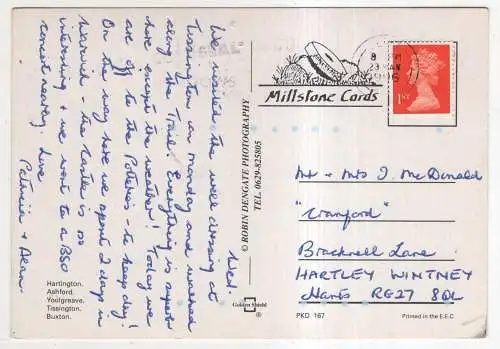 Wed.
We visited the well dressing at
Tissington on Monday and walked
along the Trail. Everything is superb
here except the weather! Today we
are off to the Potteries - to keep dry!
On the way here we spent 2 days in
Warwick - the Castle is so
interesting & we went to a BSO
concert nearby. Love
Patricia & Alan.
Hartington.
Ashford.
Youlgreave.
Tissington.
Buxton.
© ROBIN DENGATE PHOTOGRAPHY
TEL. 0629-825805
Golden Shield
®
Millstone Cards
8
1ST
Mr & Mrs J. McDonald
"Cranford"
Bracknell Lane
HARTLEY WINTNEY
Hants RG27 8QL
PKD 167
Printed in the E.E.C